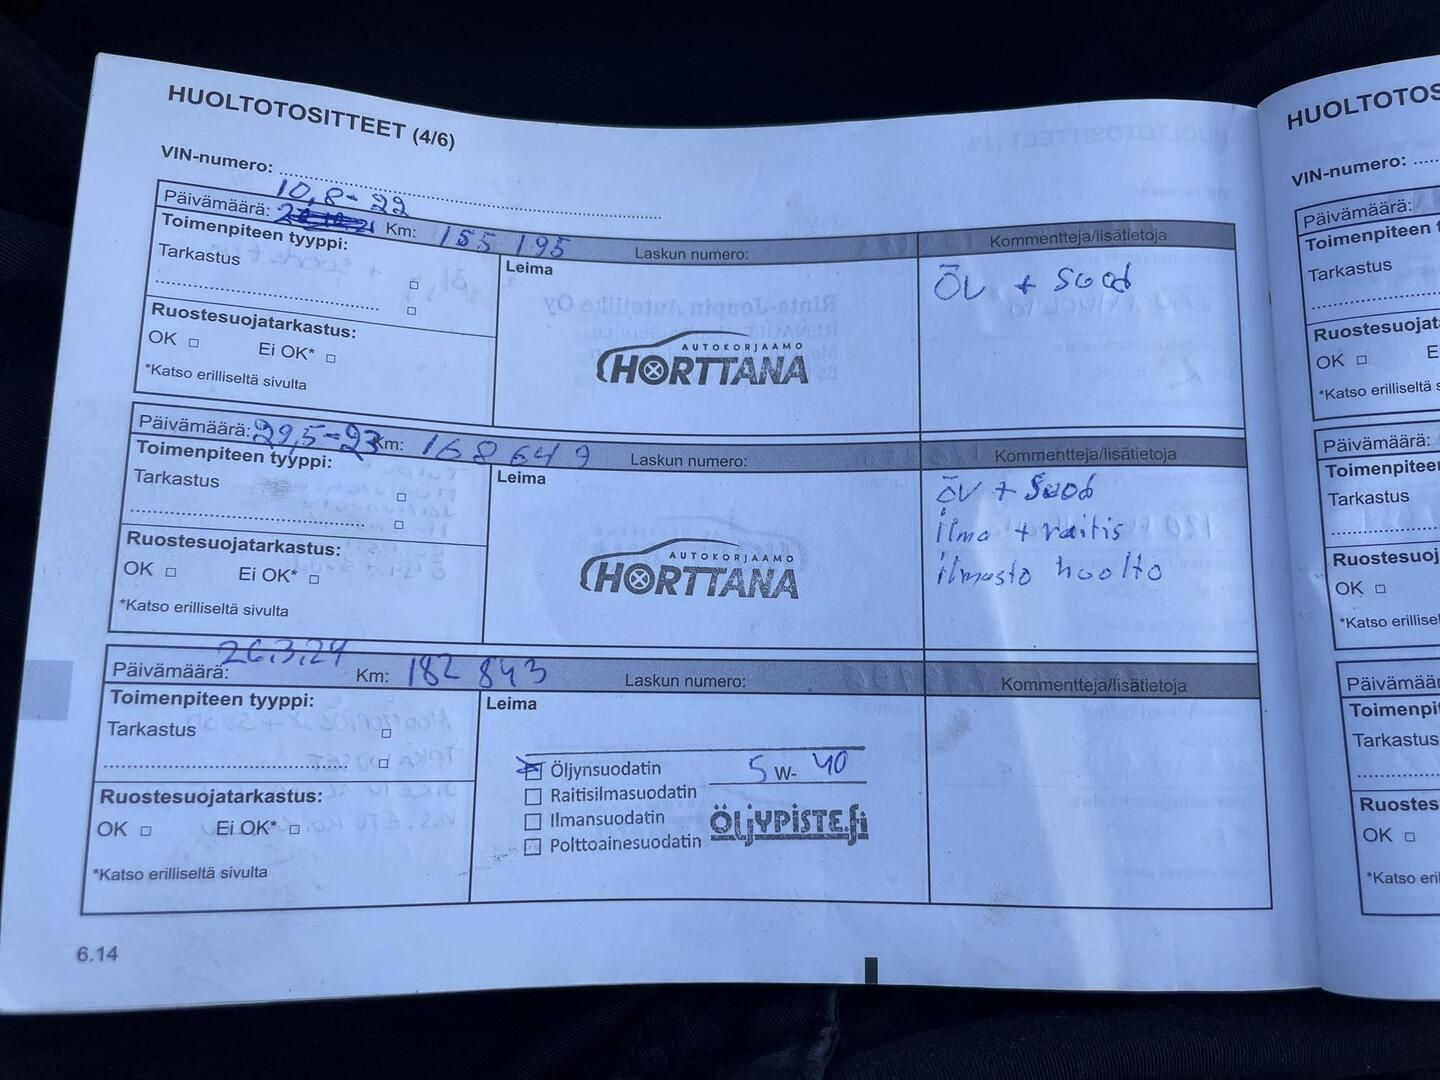 HUOLTOTOSITTEET (4/6)
VIN-numero:
10,8-22
Päivämäärä: Km: 155 195 Laskun numero: Kommentteja/lisätietoja
Toimenpiteen tyyppi:
Tarkastus
Ruostesuojatarkastus:
OK Ei OK*
*Katso erilliseltä sivulta
Leima
AUTOKORJAAMO
HORTTANA
ÖV + Suod
Päivämäärä: 29,5-23 Km: 168 649 Laskun numero: Kommentteja/lisätietoja
Toimenpiteen tyyppi:
Tarkastus
Ruostesuojatarkastus:
OK Ei OK*
*Katso erilliseltä sivulta
Leima
AUTOKORJAAMO
HORTTANA
ÖV + Suod
ilma + raitis
ilmasto huolto
26.3.24
Päivämäärä: Km: 182 843 Laskun numero: Kommentteja/lisätietoja
Toimenpiteen tyyppi:
Tarkastus
Ruostesuojatarkastus:
OK Ei OK*
*Katso erilliseltä sivulta
Leima
Öljynsuodatin 5 W- 40
Raitisilmasuodatin
Ilmansuodatin
Polttoainesuodatin
ÖLJYPISTE.fi
6.14
HUOLTOTOS
VIN-numero:
Päivämäärä:
Toimenpiteen t
Tarkastus
Ruostesuojat
OK E
*Katso erilliseltä s
Päivämäärä:
Toimenpiteen
Tarkastus
Ruostesuoj
OK
*Katso erillisel
Päivämäär
Toimenpit
Tarkastus
Ruostes
OK
*Katso eril